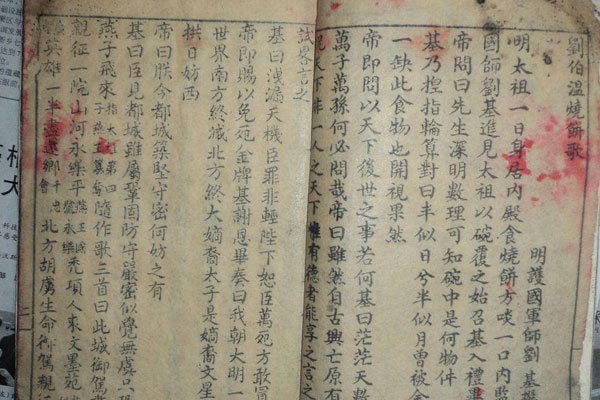 劉伯温燒餅歌
明護國軍師劉基撰
明太祖一日身居内殿食燒餅方啖一口内監
國師劉基進見太祖以碗覆之始召基入禮畢
帝問曰先生深明數理可知碗中是何物件
基乃揑指輪算對曰半似日兮半似月曾被金
一缺此食物也開視果然
帝即問以天下後世之事若何基曰茫茫天數
萬子萬孫何必問哉帝曰雖然自古興亡原有
見天下非一人之天下惟有德者能享之言之
試畧言之
基曰洩漏天機臣罪非輕陛下恕臣萬死方敢冒
帝即賜以免死金牌基謝恩畢奏曰我朝大明一
世界南方終滅北方終大嫡裔太子是嫡裔文星
拱日妨西
帝曰朕今都城築堅守密何妨之有
基曰臣見都城雖屬鞏固防守嚴密似覺無虞只恐
燕子飛來指第四子燕王篡奪隨作歌三首曰此城御駕
親征一院山河永樂平禿頂人來文墨苑
英雄一半盡還鄉北方胡虜生命御駕親征